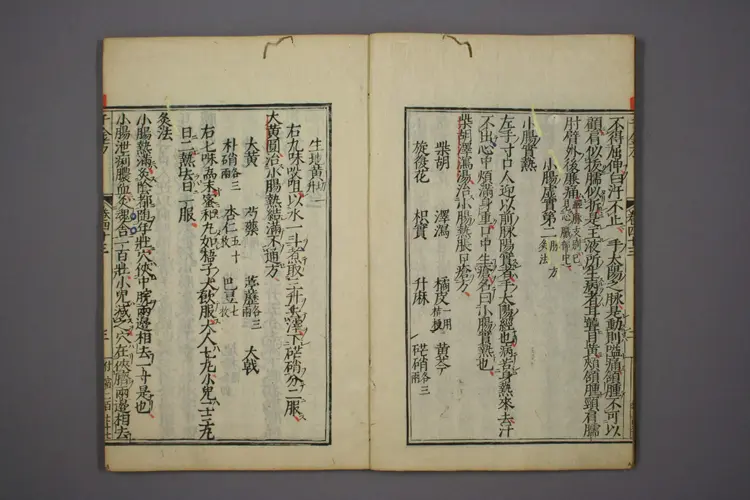 不得屈伸曰汗不止手太陽之脉是動則嗌痛頷腫不可以
顧肩似拔臑似折是主液所生病者耳聾目黃頰頷腫頸肩臑
肘臂外後廉痛
小腸虛實第二
小腸實熱
左手寸口人迎以前脉陽實者手太陽經也病苦身熱來去汗
不出心中煩滿身重口中生瘡名曰小腸實熱也
柴胡澤瀉湯治小腸熱脹口瘡方
柴胡 澤瀉 橘皮 黃芩
旋葍花 枳實 升麻 芒硝各三兩
生地黃
右九味㕮咀以水一斗煮取三升去滓下芒硝分二服
大黃圓治小腸熱結滿不通方
大黃 芍藥 葶藶各三兩 大戟
朴硝各三兩 杏仁五十枚 巴豆七枚
右七味爲末蜜和丸如梧子大飲服大人七丸小兒一二三丸
日二熱去日一服
灸法
小腸熱滿灸陰都隨年壯穴俠中脘兩邊相去一寸是也
小腸泄痢膿血灸魂舍一百壯小兒減之穴在俠臍兩邊相去